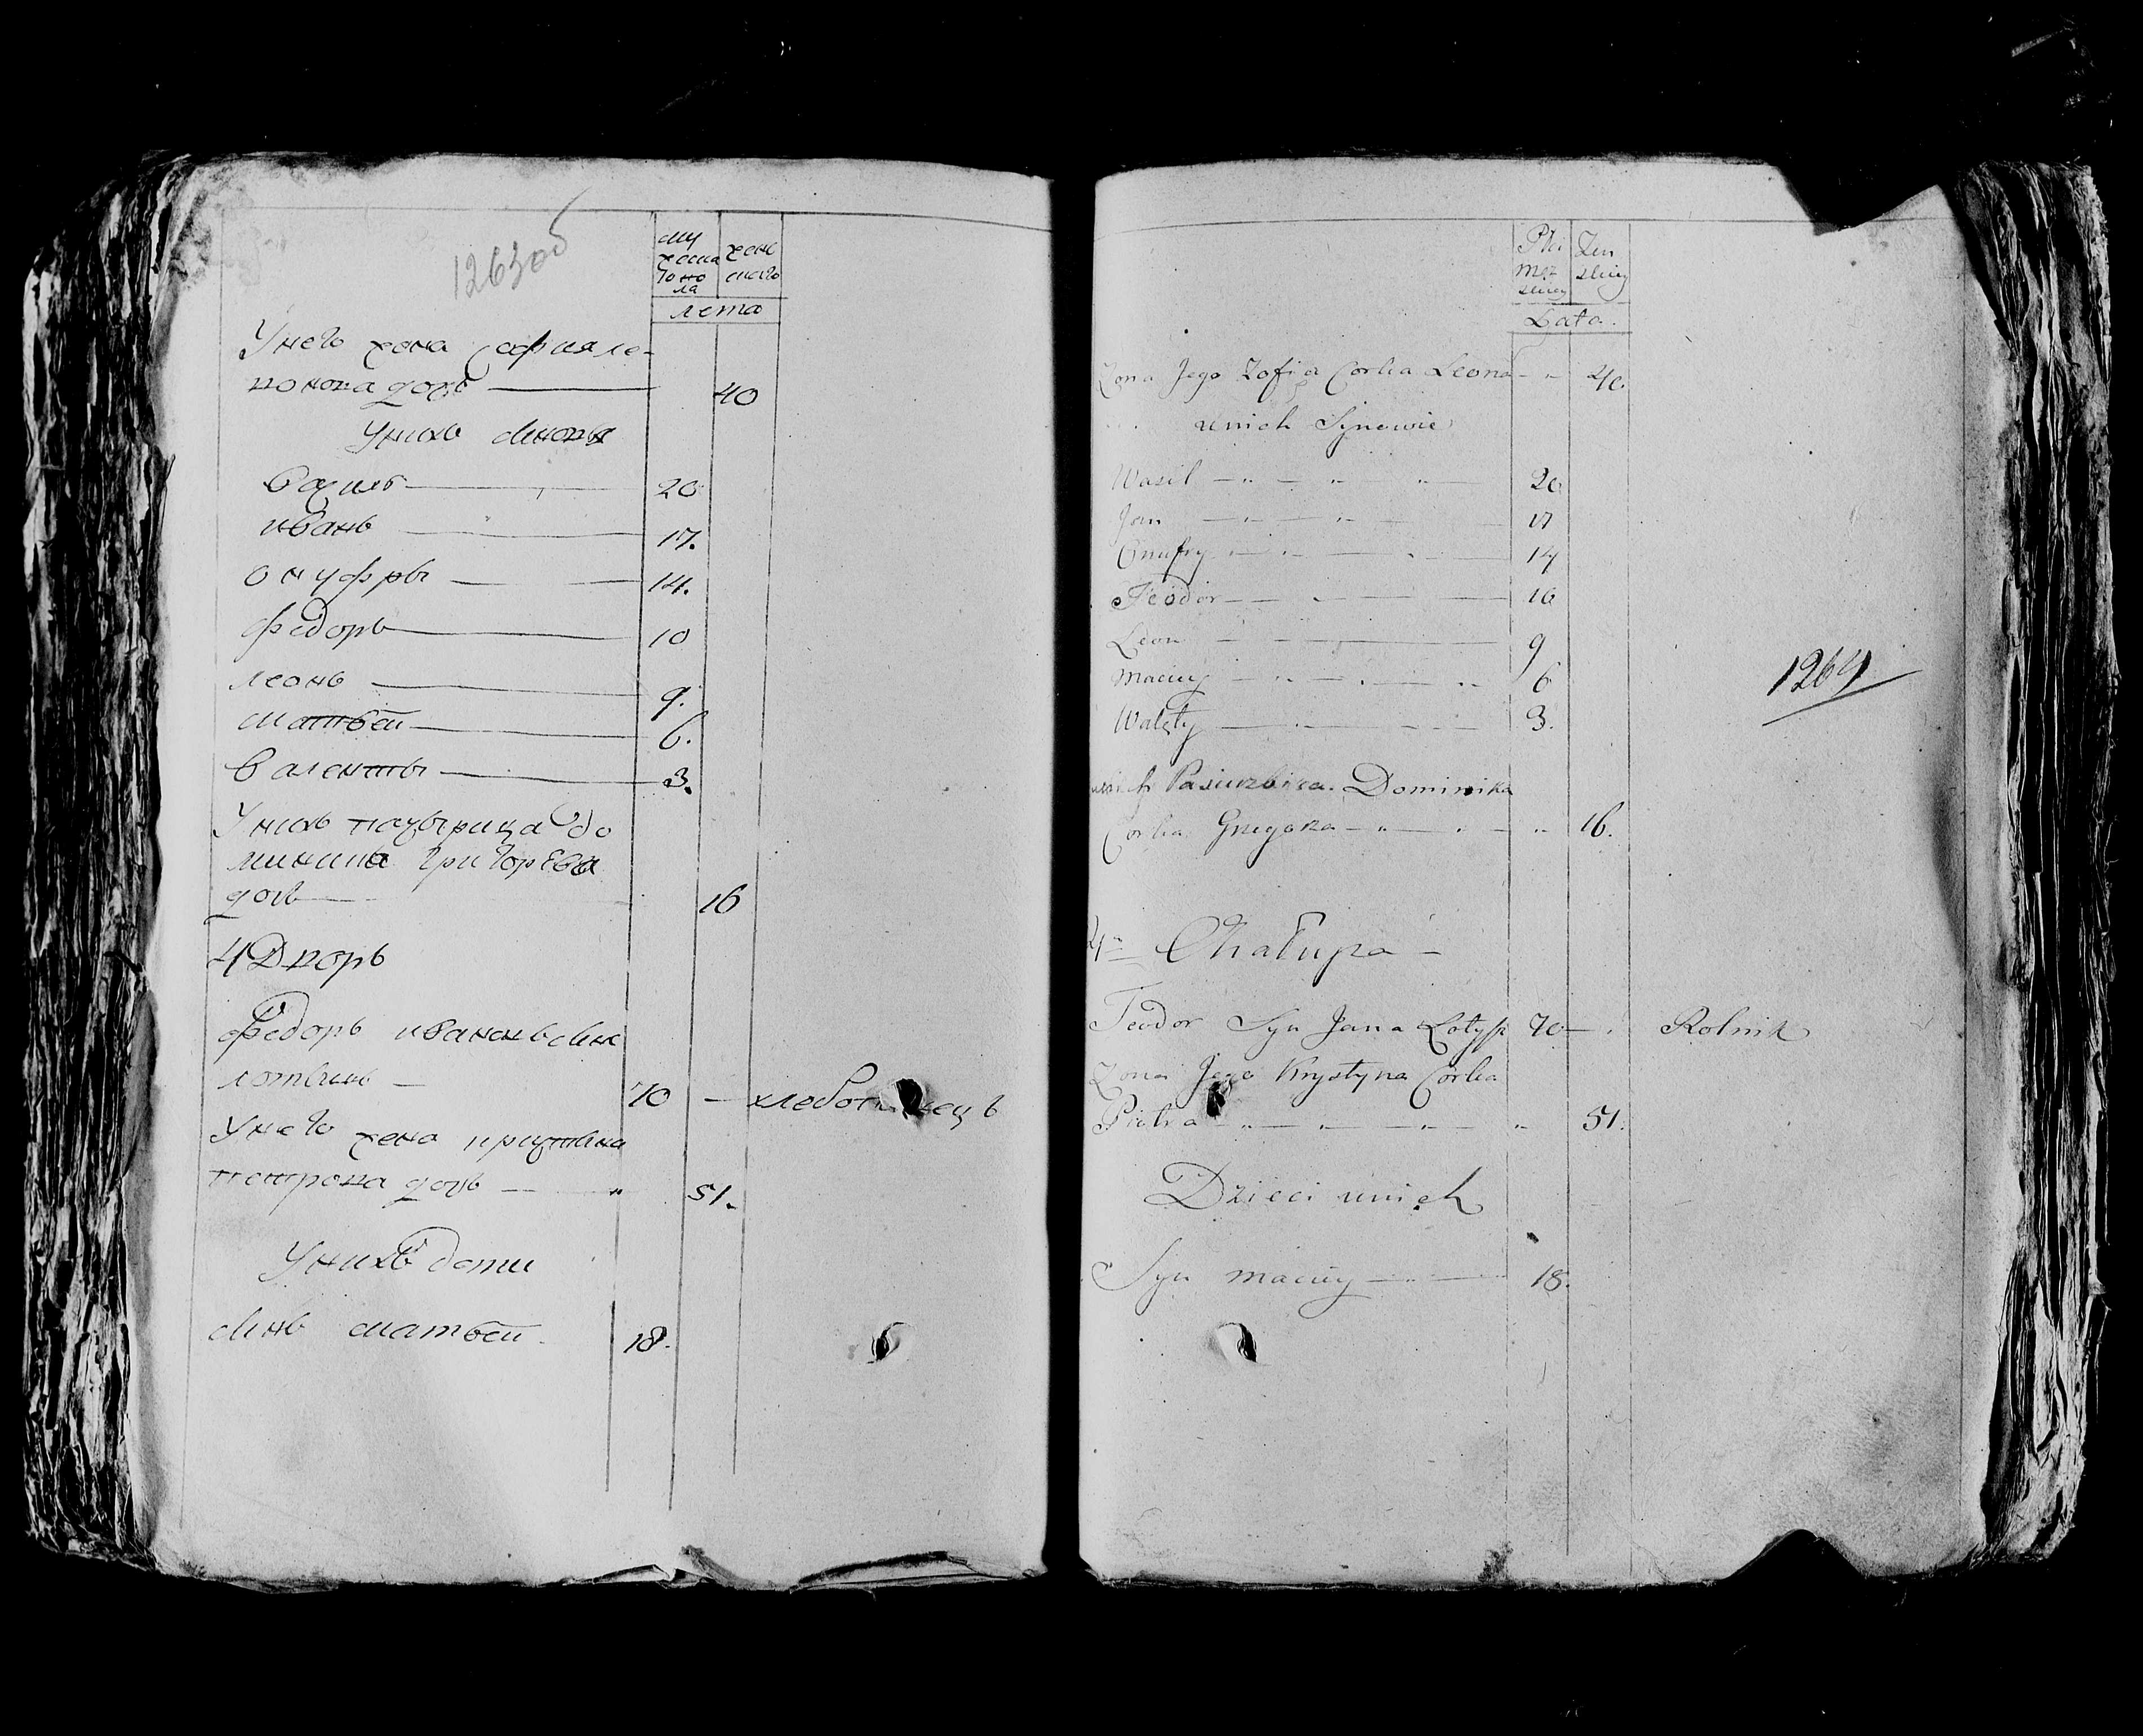 1263об
му
жеска
го по
ла
женс
каго
лета
У него жена софия ле-
вонова дочь 40
У нихъ синовья
Вазиль 20
иванъ 17.
онуфры 14.
федоръ 10
леонъ 9.
матвей 6.
валенты 3.
У нихъ пазырица до
миника григорева
дочь 16
4 Дворъ
Федоръ ивановъ синъ
лотышъ 70 — хлебо
У него жена криштина
петрова дочь — „ 51.
У нихъ дети
синъ матвей. 18.
Płci
męz
skiey
Zen
skiey
Lata.
Zona Jego Zofija Corka Leona 40.
u nich Synowie
Wasil 20
Jan 17
Onufry 14
Teodor 10
Leon 9
Maciey 6
Walęty 3.
1264
u nich Pasierbica Dominika
Corka Grzegorza 16.
4ta Chałupa —
Teodor Syn Jana Łotysz 70 — Rolnik
Zona Jego Krystyna Corka
Piotra 51.
Dzieci u nich
Syn Maciey 18.